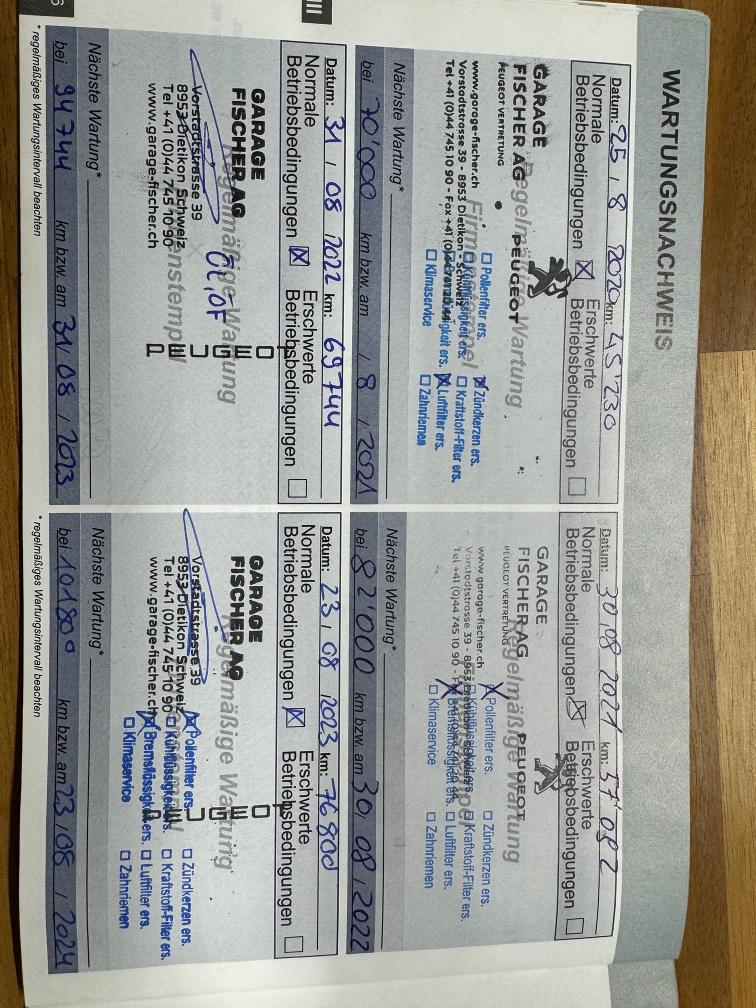 WARTUNGSNACHWEIS
Datum: 25 / 8 2020 km: 45'230
Normale Betriebsbedingungen ☒ Erschwerte Betriebsbedingungen ☐
Regelmäßige Wartung
Firmenstempel
GARAGE
FISCHER AG
PEUGEOT VERTRETUNG
PEUGEOT
www.garage-fischer.ch
Vorstadtstrasse 39 - 8953 Dietikon - Schweiz
Tel +41 (0)44 745 10 90 - Fax +41 (0)44
☐ Pollenfilter ers. ☒ Zündkerzen ers.
☐ Kühlflüssigkeit ers. ☐ Kraftstoff-Filter ers.
☒ Luftfilter ers.
☐ Klimaservice ☐ Zahnriemen
Nächste Wartung*
bei 70'000 km bzw. am / 8 / 2021
Datum: 30 / 08 2021 km: 57'082
Normale Betriebsbedingungen ☒ Erschwerte Betriebsbedingungen ☐
Regelmäßige Wartung
GARAGE
FISCHER AG
PEUGEOT VERTRETUNG
PEUGEOT
www.garage-fischer.ch
Vorstadtstrasse 39 - 8953
Tel +41 (0)44 745 10 90 -
☒ Pollenfilter ers. ☐ Zündkerzen ers.
☐ Kühlflüssigkeit ers. ☐ Kraftstoff-Filter ers.
☒ Bremsflüssigkeit ers. ☐ Luftfilter ers.
☐ Klimaservice ☐ Zahnriemen
Nächste Wartung*
bei 82'000 km bzw. am 30 / 08 / 2022
III
Datum: 31 / 08 / 2022 km: 69744
Normale Betriebsbedingungen ☒ Erschwerte Betriebsbedingungen ☐
Regelmäßige Wartung
Firmenstempel
GARAGE
FISCHER AG
PEUGEOT
Vorstadtstrasse 39
8953 Dietikon Schweiz
Tel +41 (0)44 745 10 90
www.garage-fischer.ch
Nächste Wartung*
bei 94744 km bzw. am 31 / 08 / 2023
* regelmäßiges Wartungsintervall beachten
Datum: 23 / 08 / 2023 km: 76800
Normale Betriebsbedingungen ☒ Erschwerte Betriebsbedingungen ☐
Regelmäßige Wartung
GARAGE
FISCHER AG
PEUGEOT
Vorstadtstrasse 39
8953 Dietikon Schweiz
Tel +41 (0)44 745 10 90
www.garage-fischer.ch
☒ Pollenfilter ers. ☐ Zündkerzen ers.
☐ Kühlflüssigkeit ers. ☐ Kraftstoff-Filter ers.
☒ Bremsflüssigkeit ers. ☐ Luftfilter ers.
☐ Klimaservice ☐ Zahnriemen
Nächste Wartung*
bei 101800 km bzw. am 23 / 08 / 2024
* regelmäßiges Wartungsintervall beachten